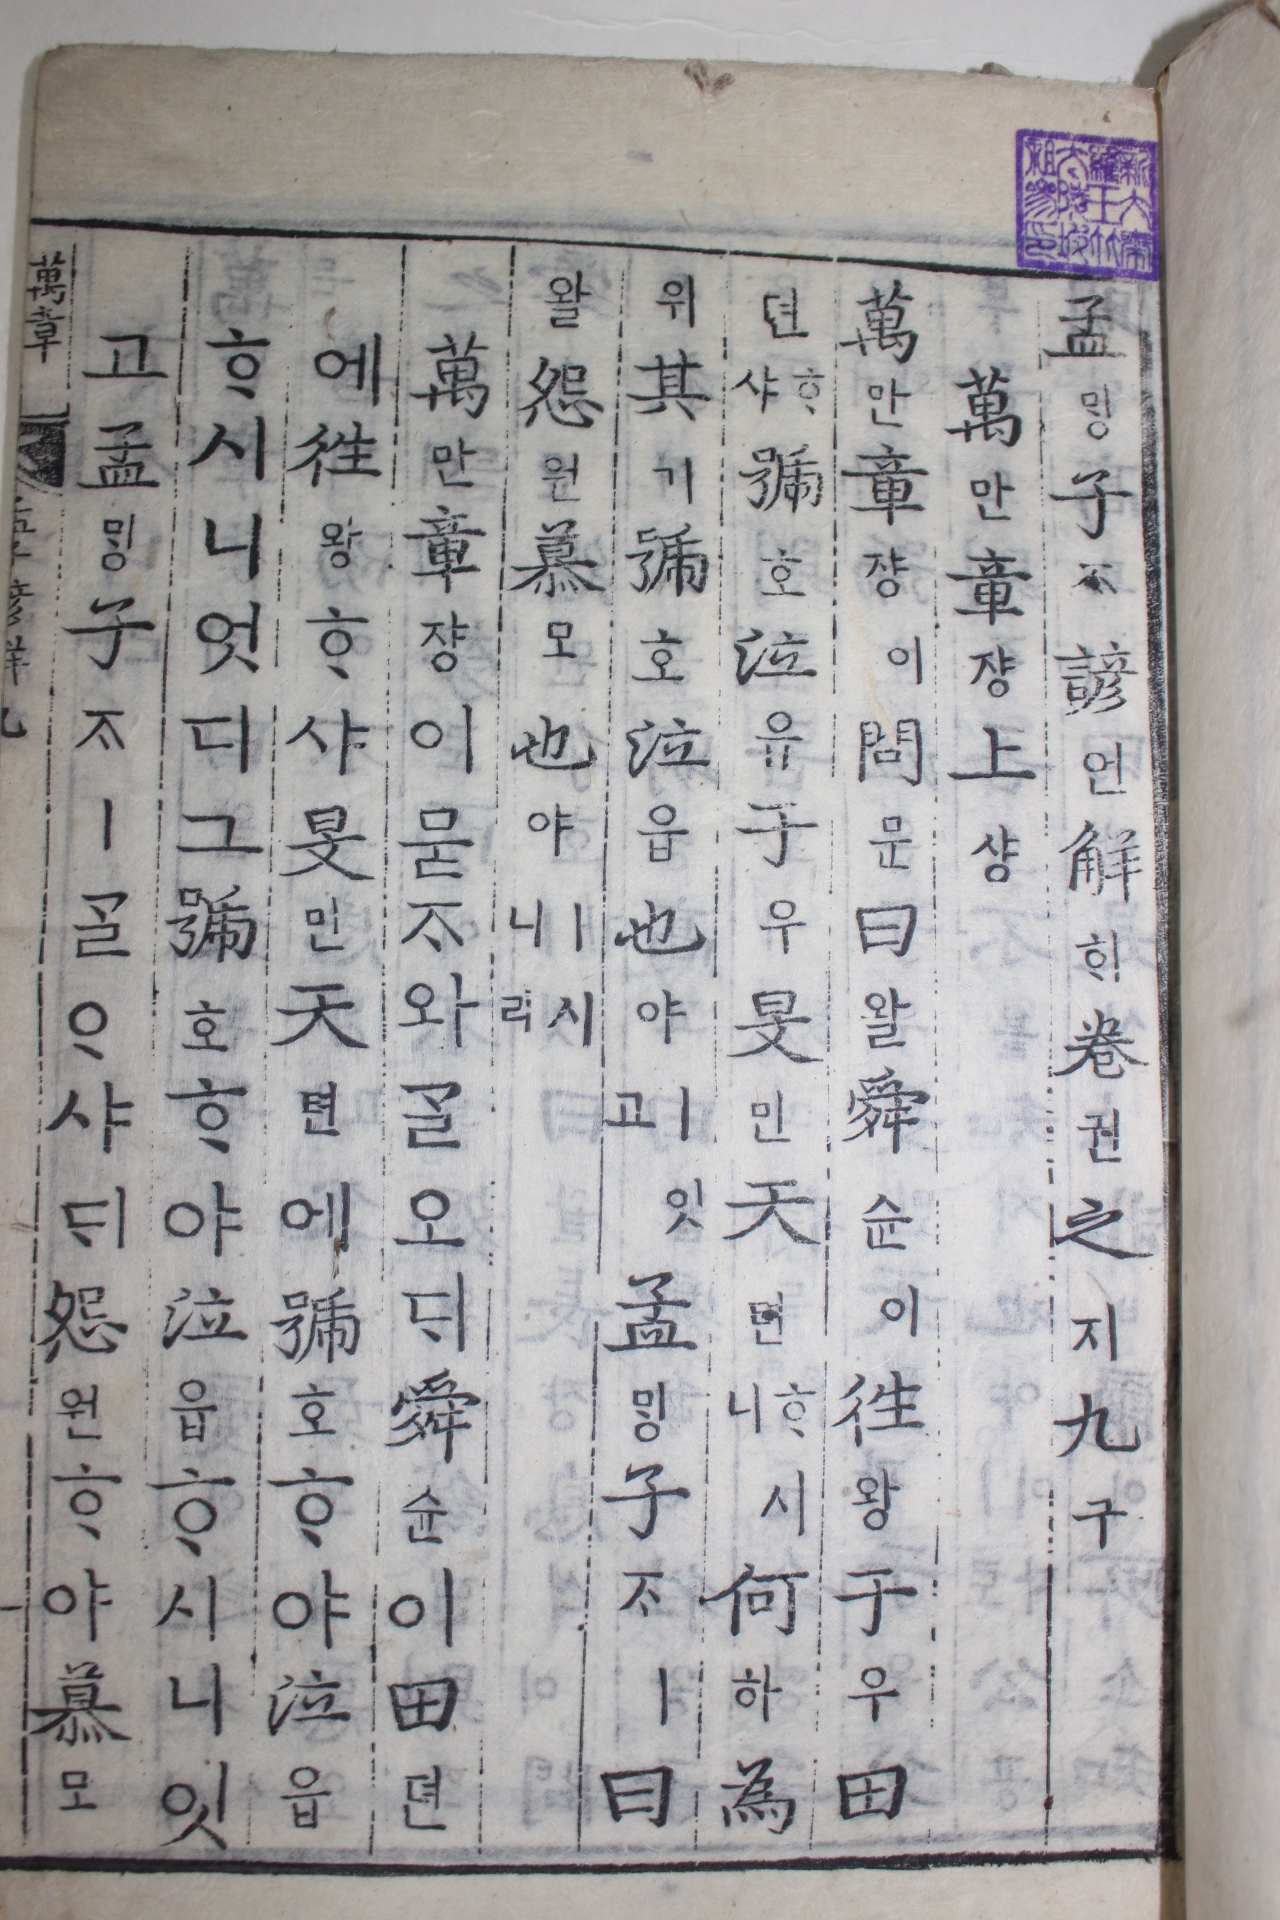 孟ᄆᆡᆼ子ᄌᆞ諺언解ᄒᆡ卷권之지九구
萬만章쟝上샹
萬만章쟝이問문曰왈舜슌이往왕于우田
뎐ᄒᆞ샤號호泣읍于우旻민天텬ᄒᆞ시니何하為
위其기號호泣읍也야ㅣ잇고孟ᄆᆡᆼ子ᄌᆞㅣ曰
왈怨원慕모也야ㅣ시니라
萬만章쟝이묻ᄌᆞ와ᄀᆞᆯ오ᄃᆡ舜슌이田뎐
에往왕ᄒᆞ샤旻민天텬에號호ᄒᆞ야泣읍
ᄒᆞ시니엇디그號호ᄒᆞ야泣읍ᄒᆞ시니잇
고孟ᄆᆡᆼ子ᄌᆞㅣᄀᆞᆯᄋᆞ샤ᄃᆡ怨원ᄒᆞ야慕모
萬章